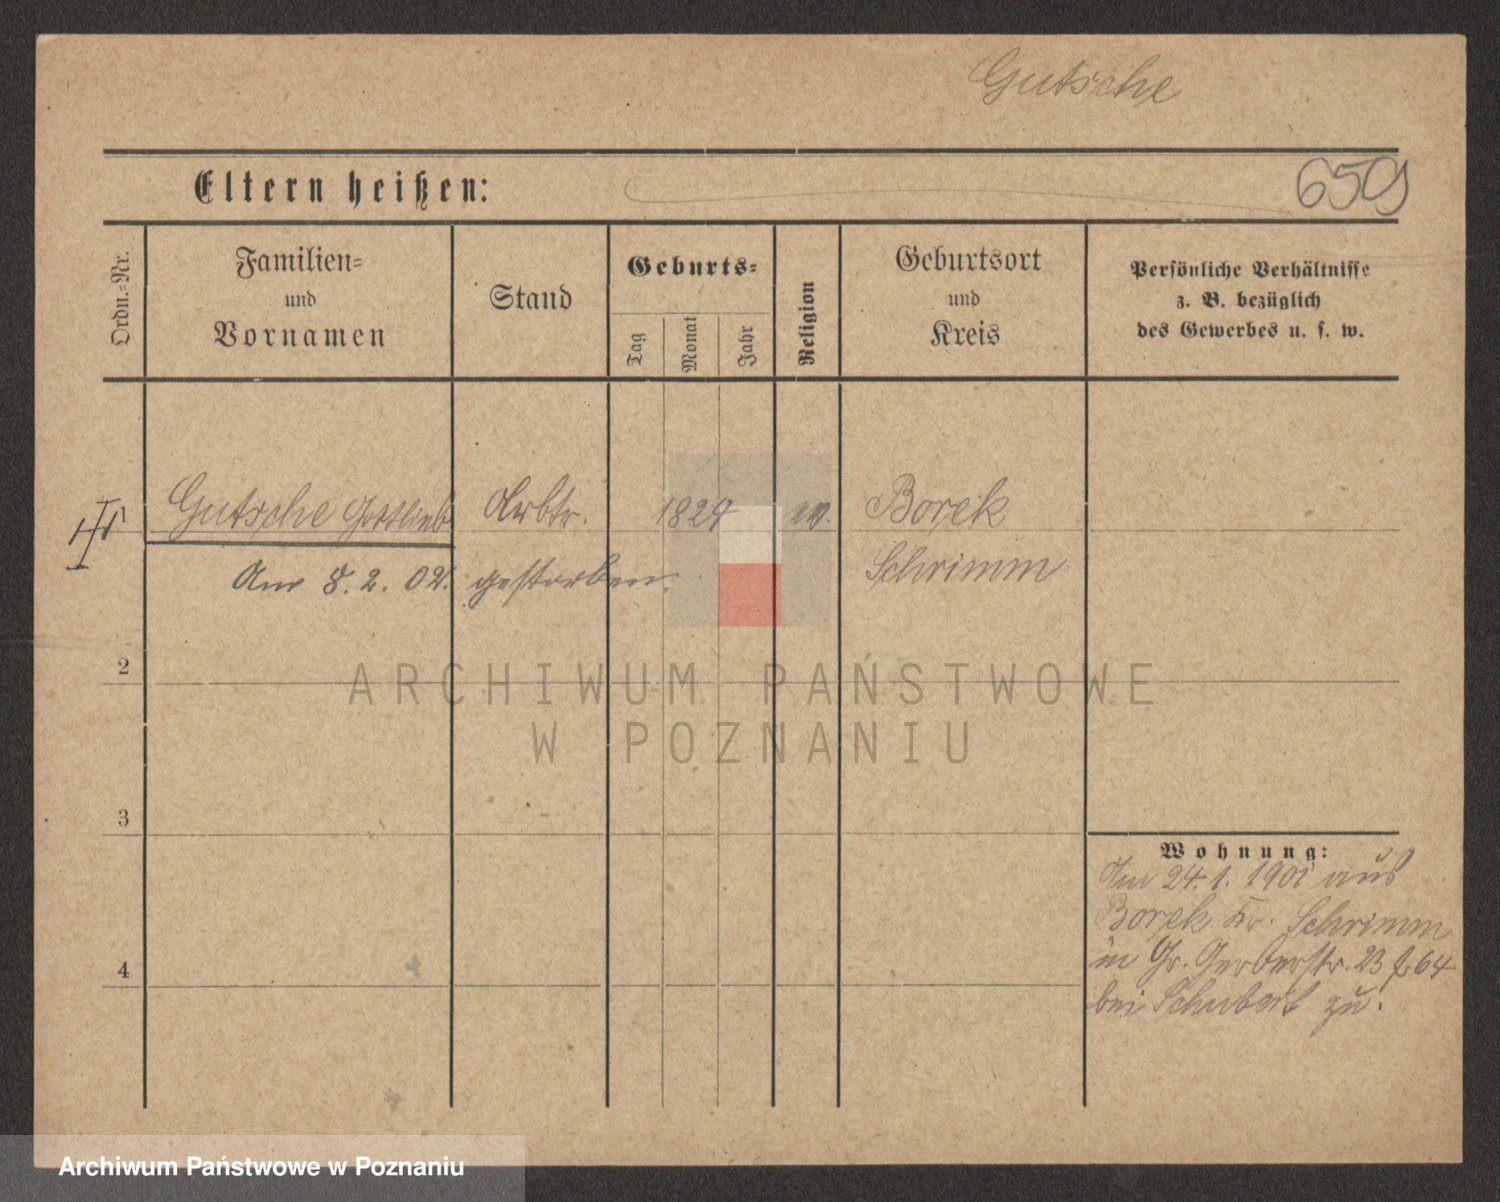 Gutsche
Eltern heißen:
659
Ordn.-Nr.
Familien-
und
Vornamen
Stand
Geburts-
Tag
Monat
Jahr
Religion
Geburtsort
und
Kreis
Persönliche Verhältnisse
z. B. bezüglich
des Gewerbes u. s. w.
Gutsche Gottlieb Arbtr. 1829 Borek
Am 8. 2. 02. gestorben. Schrimm
2
ARCHIWUM PAŃSTWOWE
W POZNANIU
3
Wohnung:
Am 24. 1. 1901 aus
Borek Kr. Schrimm
in Gr. Gerberstr. 23 64
bei Schubert zu.
4
Archiwum Państwowe w Poznaniu